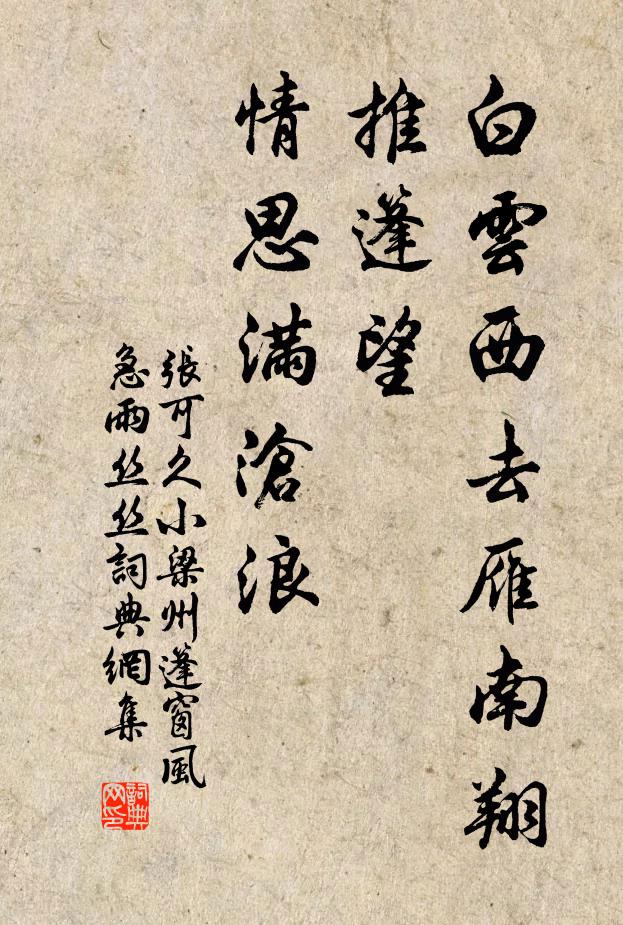 白雲西去雁南翔
推篷望
情思滿滄浪
張可久小梁州篷窗風
急雨丝丝詞典網集
詞典
网印